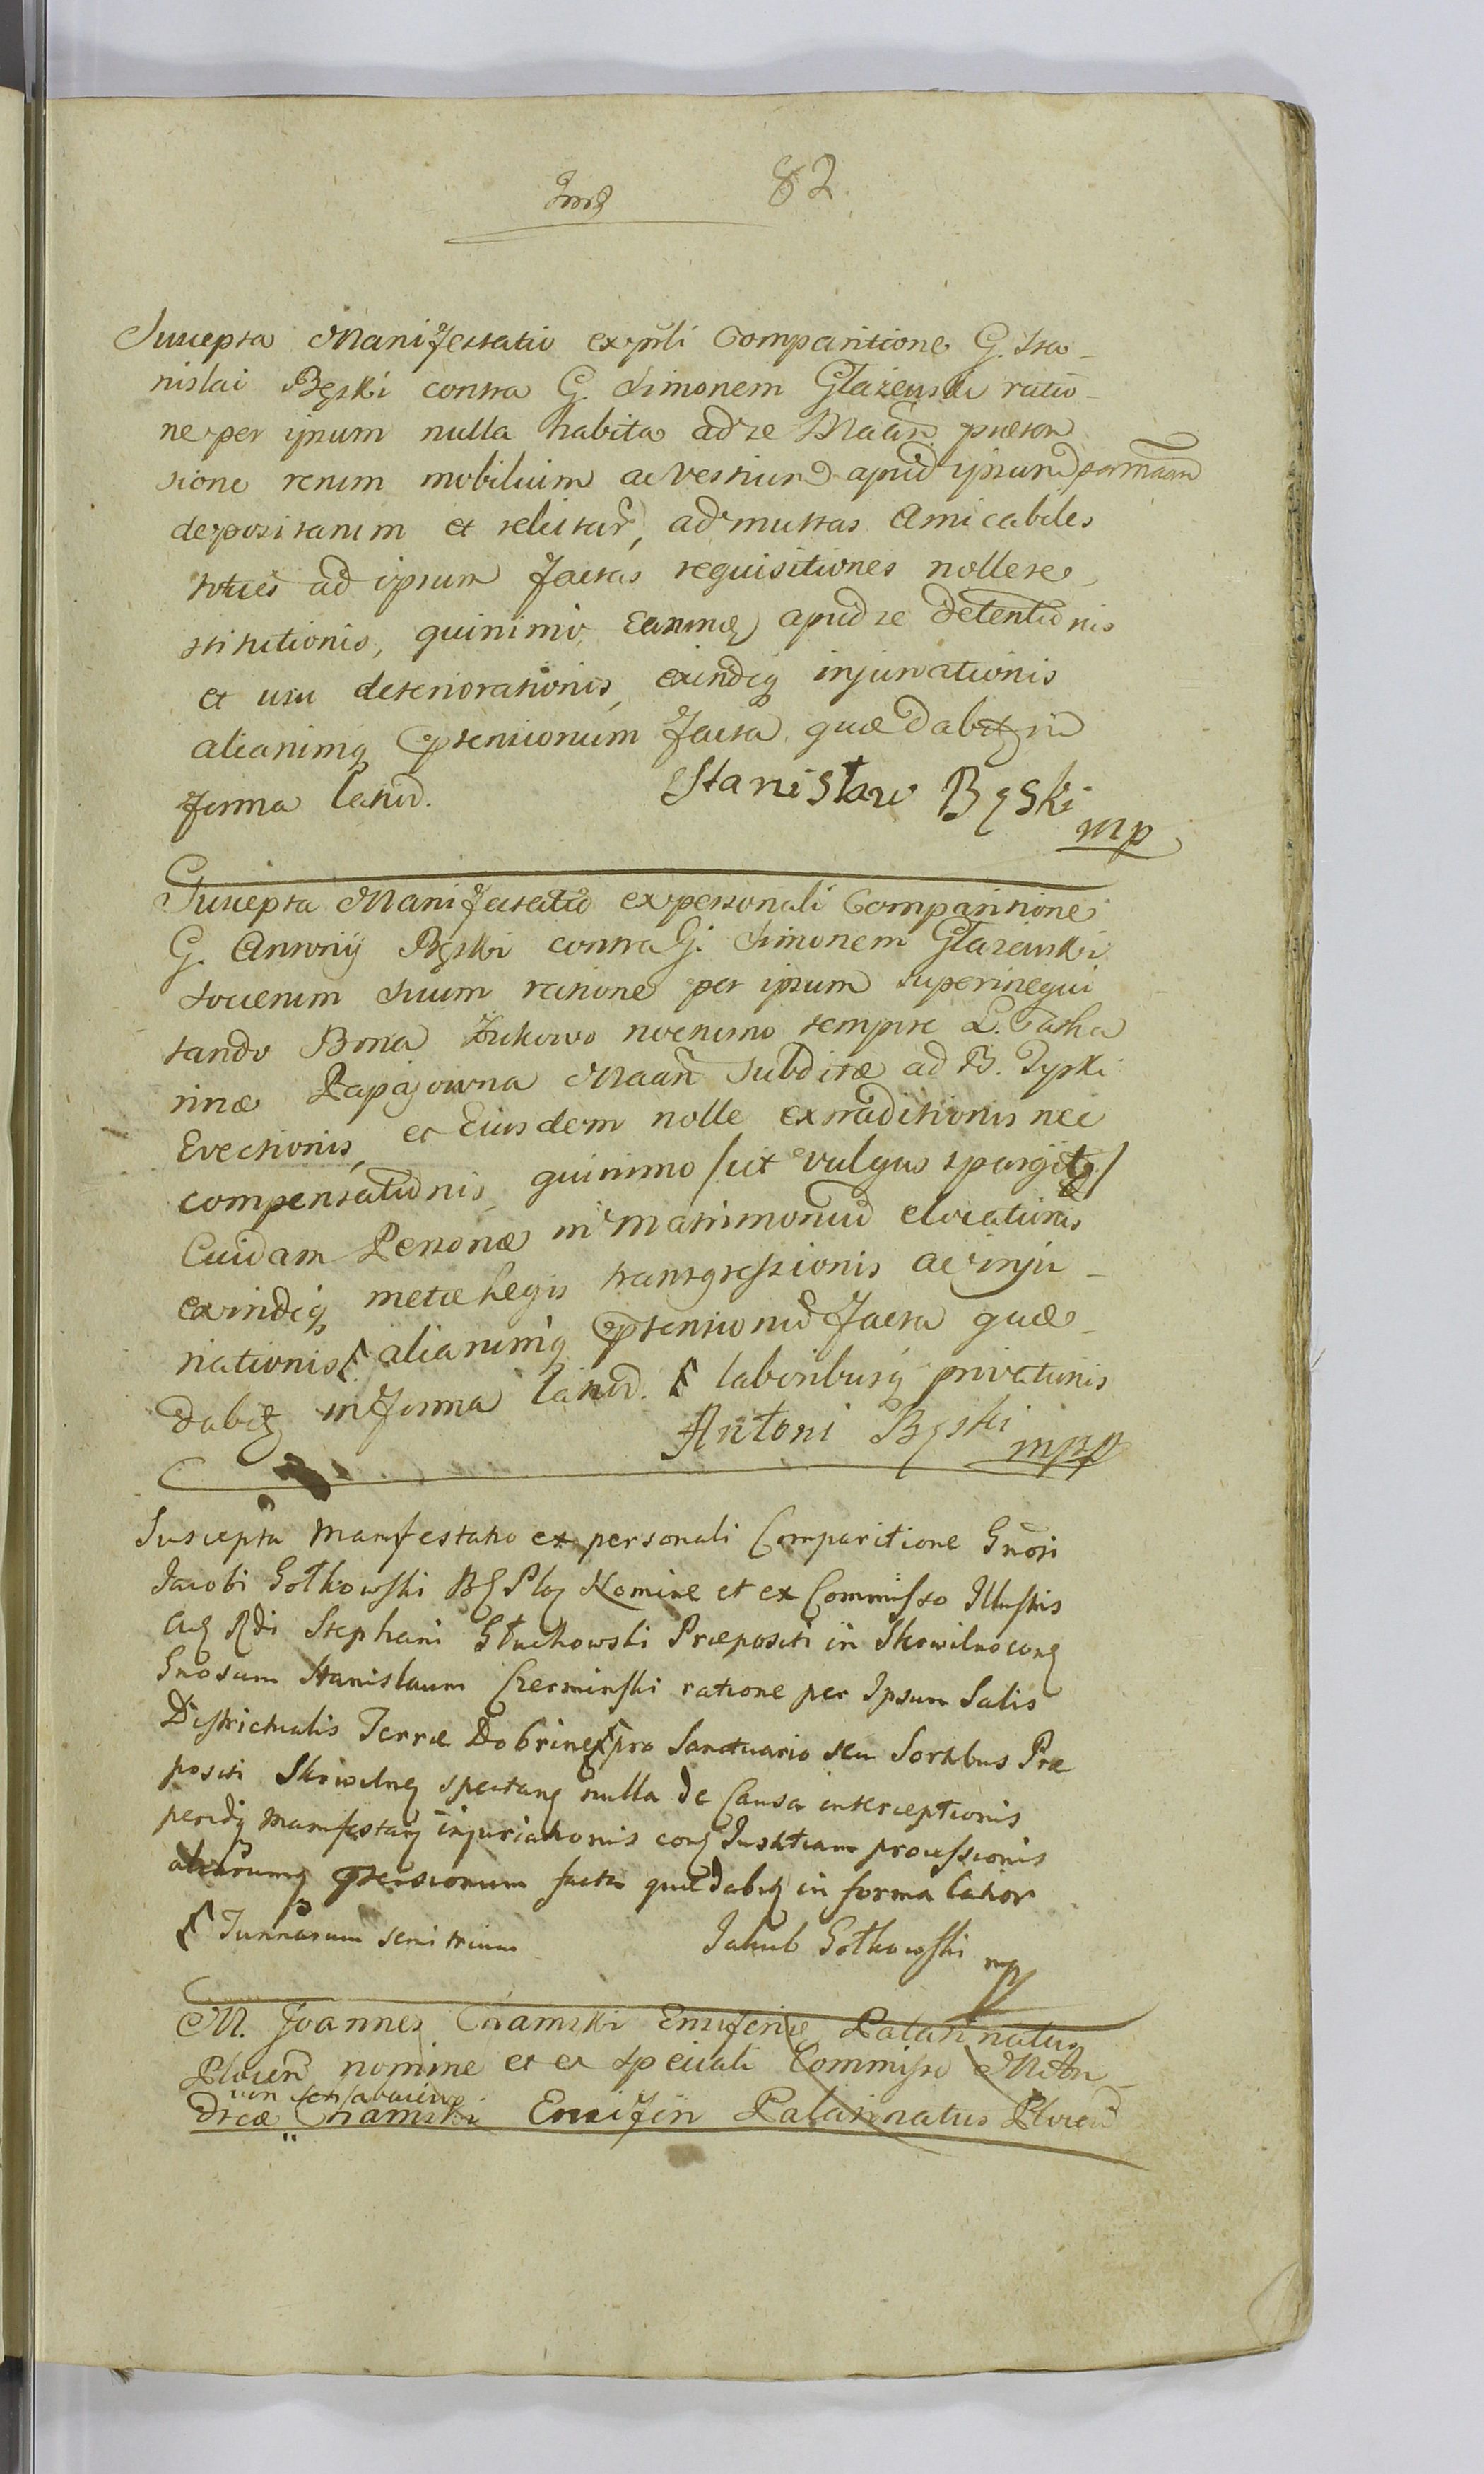 82.
Suscepta Manifestatio ex prsli Comparitione G. Sta-
nislai Bęski contra G. Simonem Głażewski ratio-
ne per ipsum nulla habita ad se Maan. præten
sione rerum mobilium ac vestium apud ipsum per Maan
depositarum et relictar, ad multas Amicabiles
toties ad ipsum factas requisitiones nolle re
stitutionis, quinimo, Earumq apud se detentionis
et usu deteriorationis, exindeq injuriationis
aliarumq ptensionum facta quæ dabitr in
forma latiori.
Stanisław Bęski
mp
Suscepta Manifestatio ex personali Comparitione
G. Antonij Bęski contra G. Simonem Głażewski
Socerum suum ratione per ipsum superinequi
tando Bona Żukowo nocturno tempore L. Catha
rinæ Papajowna Maan Subditæ ad B. Zyski
Evectionis, et Eiusdem nolle extraditionis nec
compensationis, quinimo /ut vulgus spargit/
Cuidam Personæ in Matrimonium elocationis
exindeq metæ Legis transgressionis ac inju-
riationis aliarumq ptensionum facta quæ
dabitr in forma latiori. laboribusq privationis
Antoni Bęski mpp
Suscepta Manifestatio ex personali Comparitione Gnosi
Jacobi Gotkowski BG Ploc Nomine et ex Commisso Illustris
Adq Rdi Stephani Głuchowski Præpositi in Skowilno conq
Gnosum Stanislaum Czerminski ratione per Ipsum Salis
Districtualis Terræ Dobrinen pro Sanctuario seu Sortibus Præ
positi Skowilnen spectanq nulla de Causa interceptionis
peridq Manifestanq injuriationis conq Justitiam processionis
aliarumq ptensionum facta quæ dabitr in forma latior
Tunnarum semi trium
Jakub Gotkowski mp
M. Joannes Chamski Ensiferi Palatinatus
Plocen nomine et ex speciali Commisso M. An-
dreæ Chamski Ensiferi Palatinatus Plocen